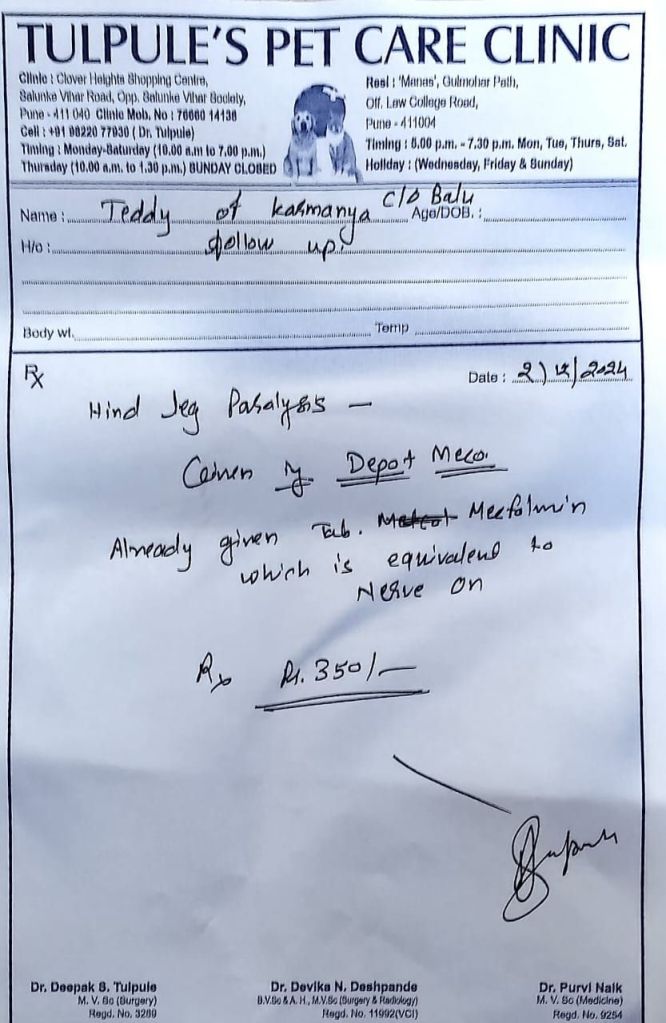 TULPULE'S PET CARE CLINIC
Clinic : Clover Heights Shopping Centre,
Salunke Vihar Road, Opp. Salunke Vihar Society,
Pune - 411 040 Clinic Mob. No : 76660 14136
Cell : +91 98220 77930 ( Dr. Tulpule)
Timing : Monday-Saturday (10.00 a.m to 7.00 p.m.)
Thursday (10.00 a.m. to 1.30 p.m.) SUNDAY CLOSED
Resi : 'Manas', Gulmohar Path,
Off. Law College Road,
Pune - 411004
Timing : 6.00 p.m. - 7.30 p.m. Mon, Tue, Thurs, Sat.
Holiday : (Wednesday, Friday & Sunday)
Name : Teddy of Karmanya c/o Balu Age/DOB. :
H/o : follow up.
Body wt. Temp
Rx Date : 2/12/2024
Hind leg Paralysis —
Given Depot Meco.
Already given Tab. Mecfolmin
which is equivalent to
Nerve On
Rs. 350/—
Dr. Deepak S. Tulpule
M. V. Sc (Surgery)
Regd. No. 3289
Dr. Devika N. Deshpande
B.V.Sc & A. H., M.V.Sc (Surgery & Radiology)
Regd. No. 11992(VCI)
Dr. Purvi Naik
M. V. Sc (Medicine)
Regd. No. 9254